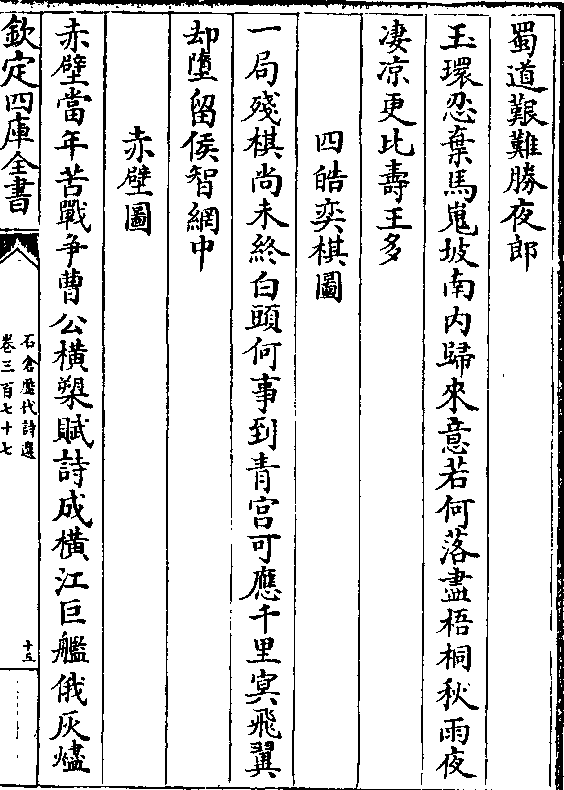 蜀道艱難勝夜郎
玉環忍棄馬嵬坡南内歸來意若何落盡梧桐秋雨夜
凄凉更比壽王多
四皓奕棋圖
一局殘棋尚未終白頭何事到青宫可應千里㝠飛翼
却墮留侯智網中
赤壁圖
赤壁當年苦戰争曹公横槊賦詩成横江巨艦俄灰燼
欽定四庫全書
石倉歴代詩選
卷三百七十七
十五